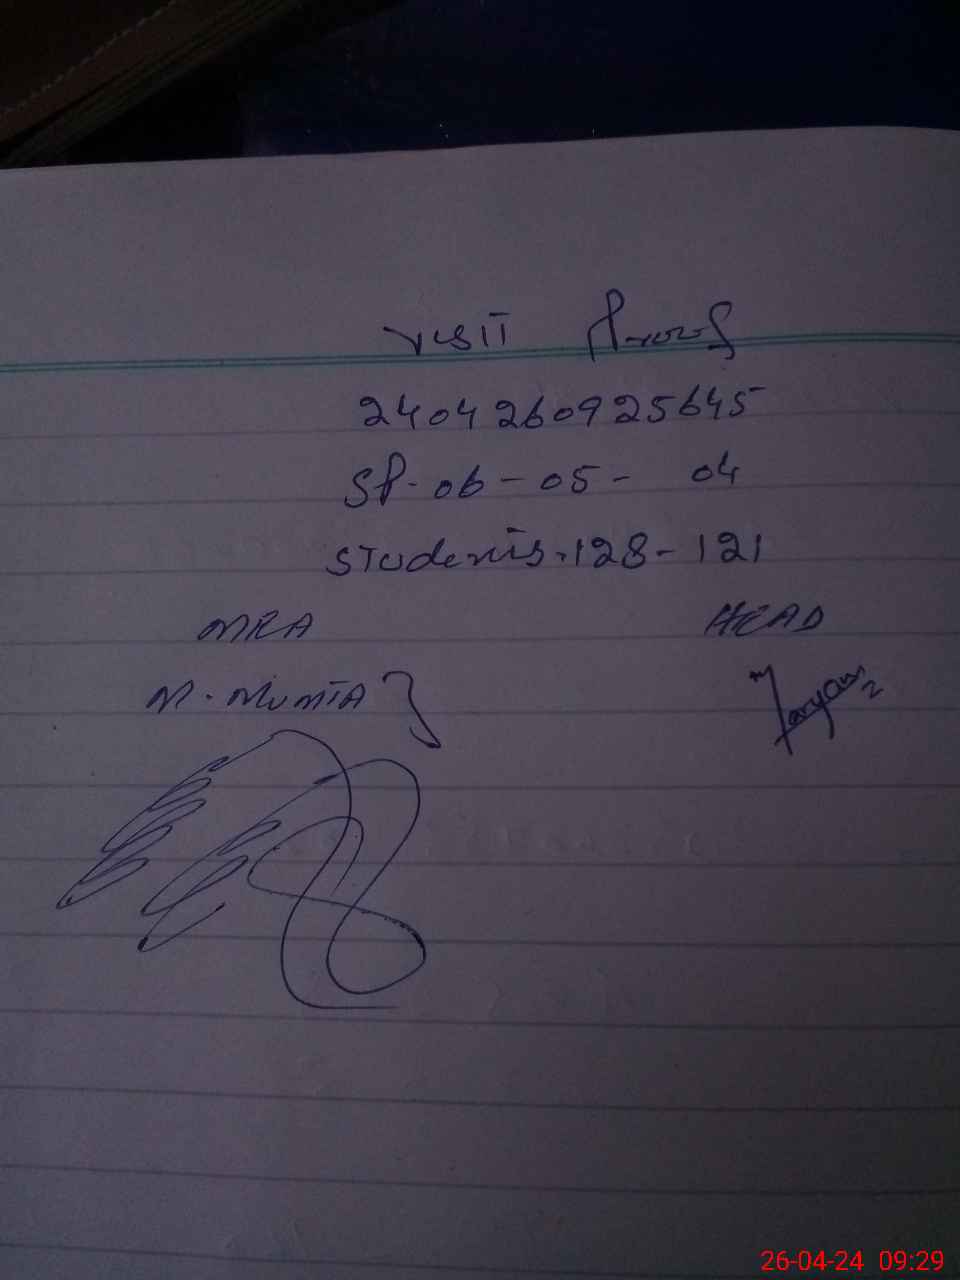 Visit Proof
2404260925645
SP-06-05- 04
Students.128-121
MEA HEAD
M. Mumta
Maryam
26-04-24 09:29